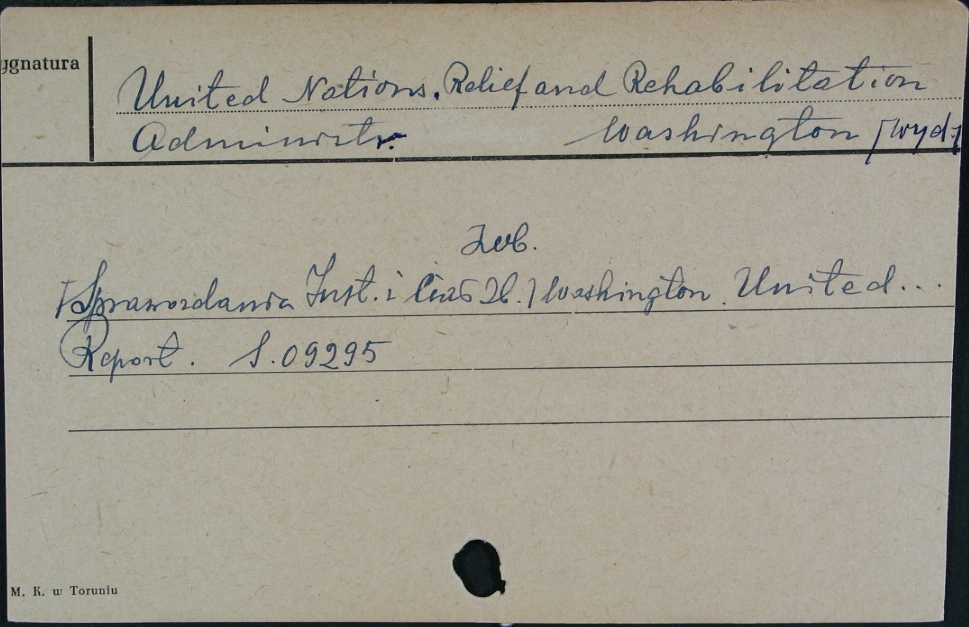 ygnatura
United Nations. Relief and Rehabilitation
Administr. Washington [wyd.]
Zob.
[Sprawozdania Inst. i Ciał Zb.] Washington. United...
Report. S.09295
M. K. w Toruniu